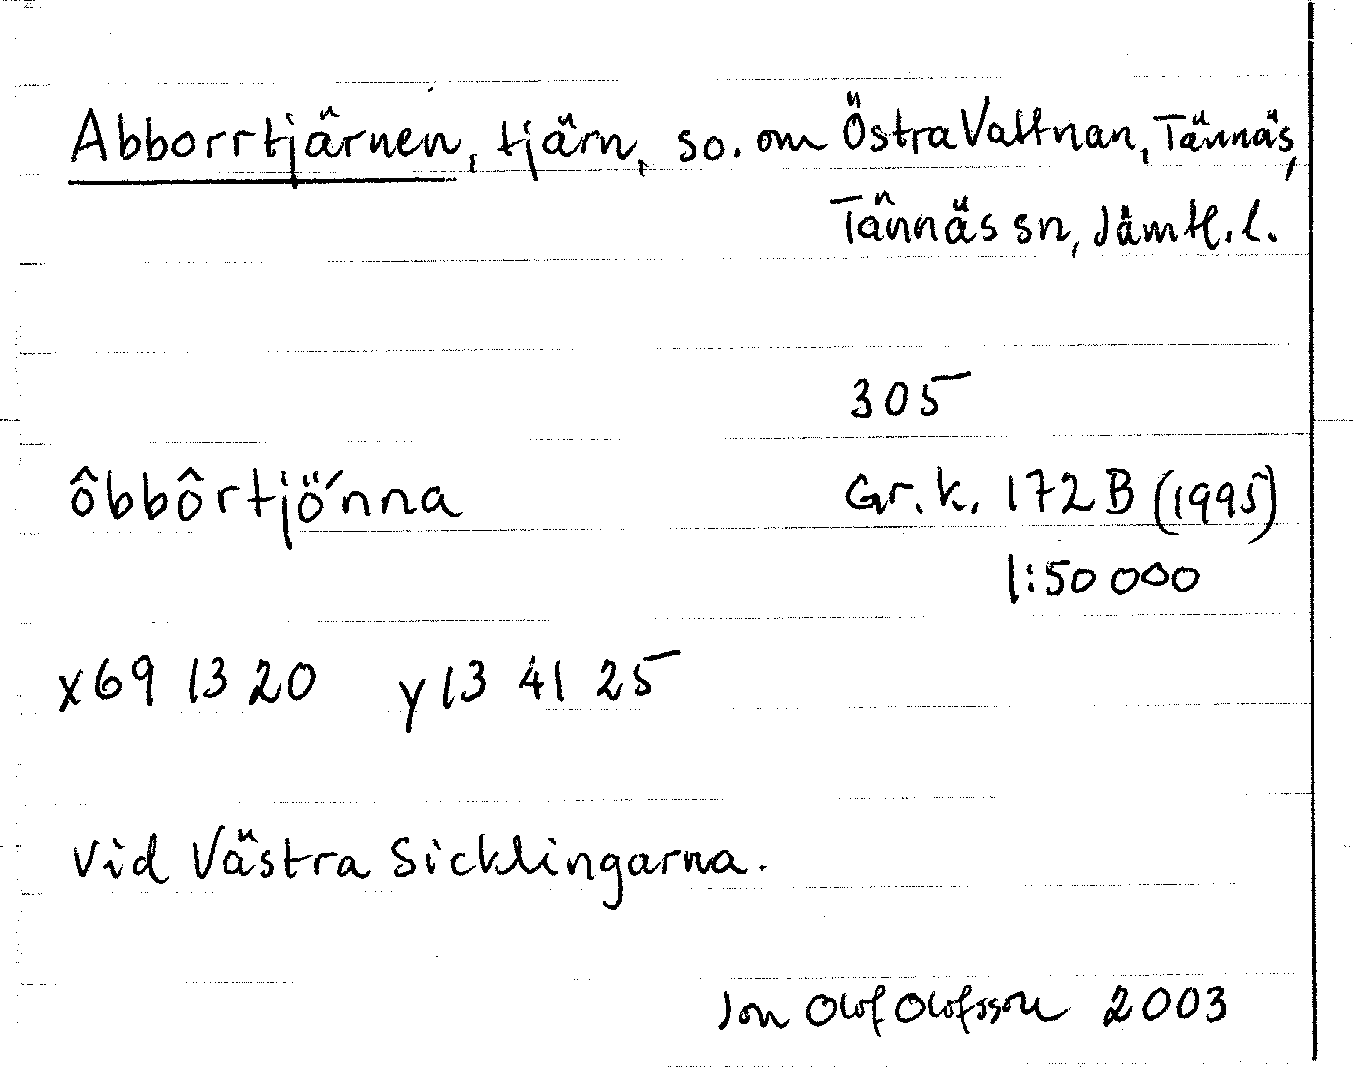 Abborrtjärnen, tjärn, so. om Östra Vattnan, Tännäs,
Tännäs sn, Jämtl. l.
305
ôbbôrtjö´nna Gr.k. 172B (1995)
1:50 000
x69 13 20 y13 41 25
Vid Västra Sicklingarna.
Jon Olof Olofsson 2003